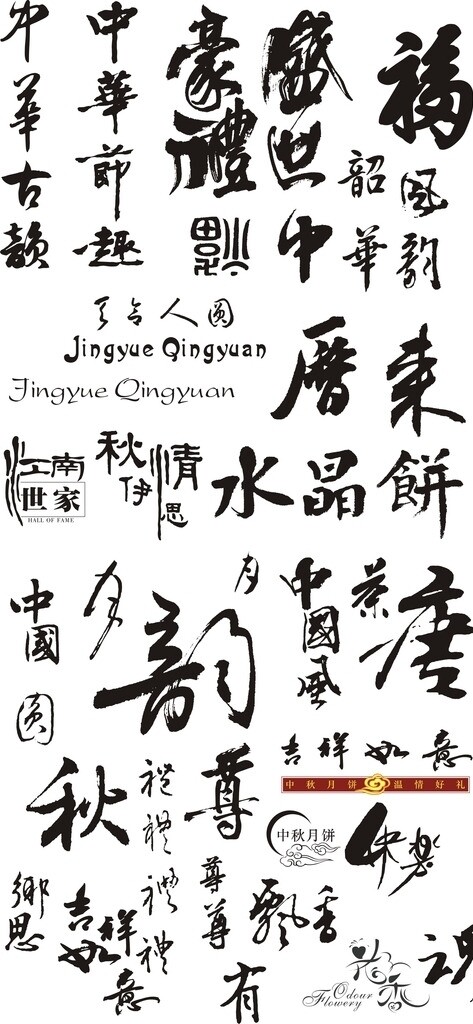 中華古韻
中華節趣
豪禮
盛世
中華
福
韶
風韵
天合人圆
Jingyue Qingyuan
Jingyue Qingyuan
唇来
江南
世家
HALL OF FAME
秋伊
情思
水晶餅
中國
圆
月
月
韵
中國風
茶
唐
吉祥如意
中秋月饼 温情好礼
秋
禮
禮
禮
禮
尊
中秋月饼
快樂
鄉思
吉祥如意
尊
尊
飄香
有
花香
Odour
Flowery